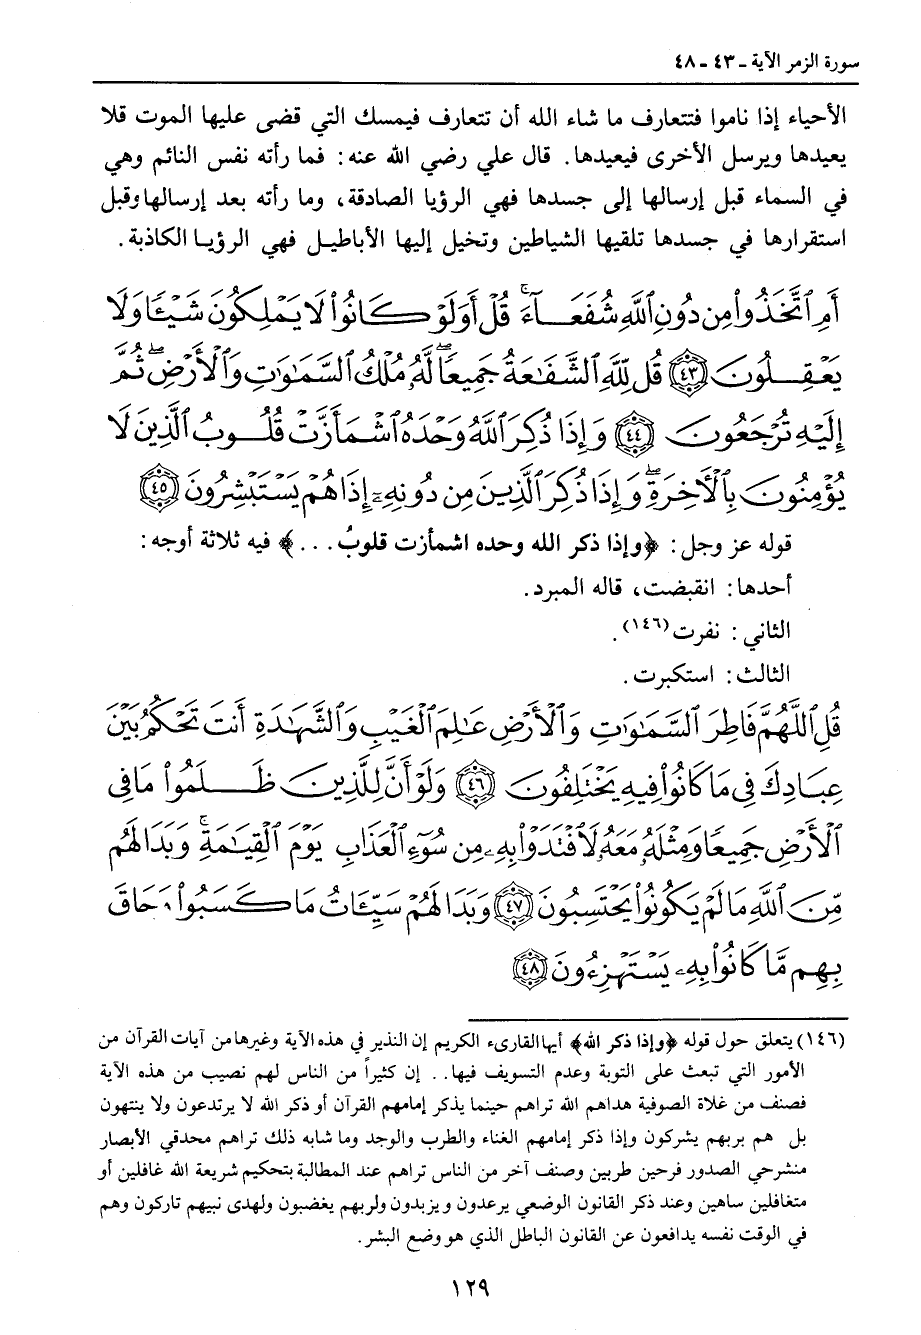 سورة الزمر الآية - ٤٣ - ٤٨
الأحياء إذا ناموا فتتعارف ما شاء الله أن تتعارف فيمسك التي قضى عليها الموت فلا
يعيدها ويرسل الأخرى فيعيدها. قال علي رضي الله عنه: فما رأته نفس النائم وهي
في السماء قبل إرسالها إلى جسدها فهي الرؤيا الصادقة، وما رأته بعد إرسالها وقبل
استقرارها في جسدها تلقيها الشياطين وتخيل إليها الأباطيل فهي الرؤيا الكاذبة.
أَمِ ٱتَّخَذُوا۟ مِن دُونِ ٱللَّهِ شُفَعَآءَ ۚ قُلْ أَوَلَوْ كَانُوا۟ لَا يَمْلِكُونَ شَيْـًٔا وَلَا
يَعْقِلُونَ ٤٣ قُل لِّلَّهِ ٱلشَّفَـٰعَةُ جَمِيعًا ۖ لَّهُۥ مُلْكُ ٱلسَّمَـٰوَٰتِ وَٱلْأَرْضِ ۖ ثُمَّ
إِلَيْهِ تُرْجَعُونَ ٤٤ وَإِذَا ذُكِرَ ٱللَّهُ وَحْدَهُ ٱشْمَأَزَّتْ قُلُوبُ ٱلَّذِينَ لَا
يُؤْمِنُونَ بِٱلْـَٔاخِرَةِ ۖ وَإِذَا ذُكِرَ ٱلَّذِينَ مِن دُونِهِۦٓ إِذَا هُمْ يَسْتَبْشِرُونَ ٤٥
قوله عز وجل: ﴿وإذا ذكر الله وحده اشمأزت قلوبُ...﴾ فيه ثلاثة أوجه:
أحدها: انقبضت، قاله المبرد.
الثاني: نفرت(١٤٦).
الثالث: استكبرت.
قُلِ ٱللَّهُمَّ فَاطِرَ ٱلسَّمَـٰوَٰتِ وَٱلْأَرْضِ عَـٰلِمَ ٱلْغَيْبِ وَٱلشَّهَـٰدَةِ أَنتَ تَحْكُمُ بَيْنَ
عِبَادِكَ فِى مَا كَانُوا۟ فِيهِ يَخْتَلِفُونَ ٤٦ وَلَوْ أَنَّ لِلَّذِينَ ظَلَمُوا۟ مَا فِى
ٱلْأَرْضِ جَمِيعًا وَمِثْلَهُۥ مَعَهُۥ لَٱفْتَدَوْا۟ بِهِۦ مِن سُوٓءِ ٱلْعَذَابِ يَوْمَ ٱلْقِيَـٰمَةِ ۚ وَبَدَا لَهُم
مِّنَ ٱللَّهِ مَا لَمْ يَكُونُوا۟ يَحْتَسِبُونَ ٤٧ وَبَدَا لَهُمْ سَيِّـَٔاتُ مَا كَسَبُوا۟ وَحَاقَ
بِهِم مَّا كَانُوا۟ بِهِۦ يَسْتَهْزِءُونَ ٤٨
(١٤٦) يتعلق حول قوله ﴿وإذا ذكر الله﴾ أيها القارىء الكريم إن النذير في هذه الآية وغيرها من آيات القرآن من
الأمور التي تبعث على التوبة وعدم التسويف فيها.. إن كثيراً من الناس لهم نصيب من هذه الآية
فصنف من غلاة الصوفية هداهم الله تراهم حينما يذكر إمامهم القرآن أو ذكر الله لا يرتدعون ولا ينتهون
بل هم بربهم يشركون وإذا ذكر إمامهم الغناء والطرب والوجد وما شابه ذلك تراهم محدقي الأبصار
منشرحي الصدور فرحين طربين وصنف آخر من الناس تراهم عند المطالبة بتحكيم شريعة الله غافلين أو
متغافلين ساهين وعند ذكر القانون الوضعي يرعدون ويزبدون ولربهم يغضبون ولهدى نبيهم تاركون وهم
في الوقت نفسه يدافعون عن القانون الباطل الذي هو وضع البشر.
١٢٩